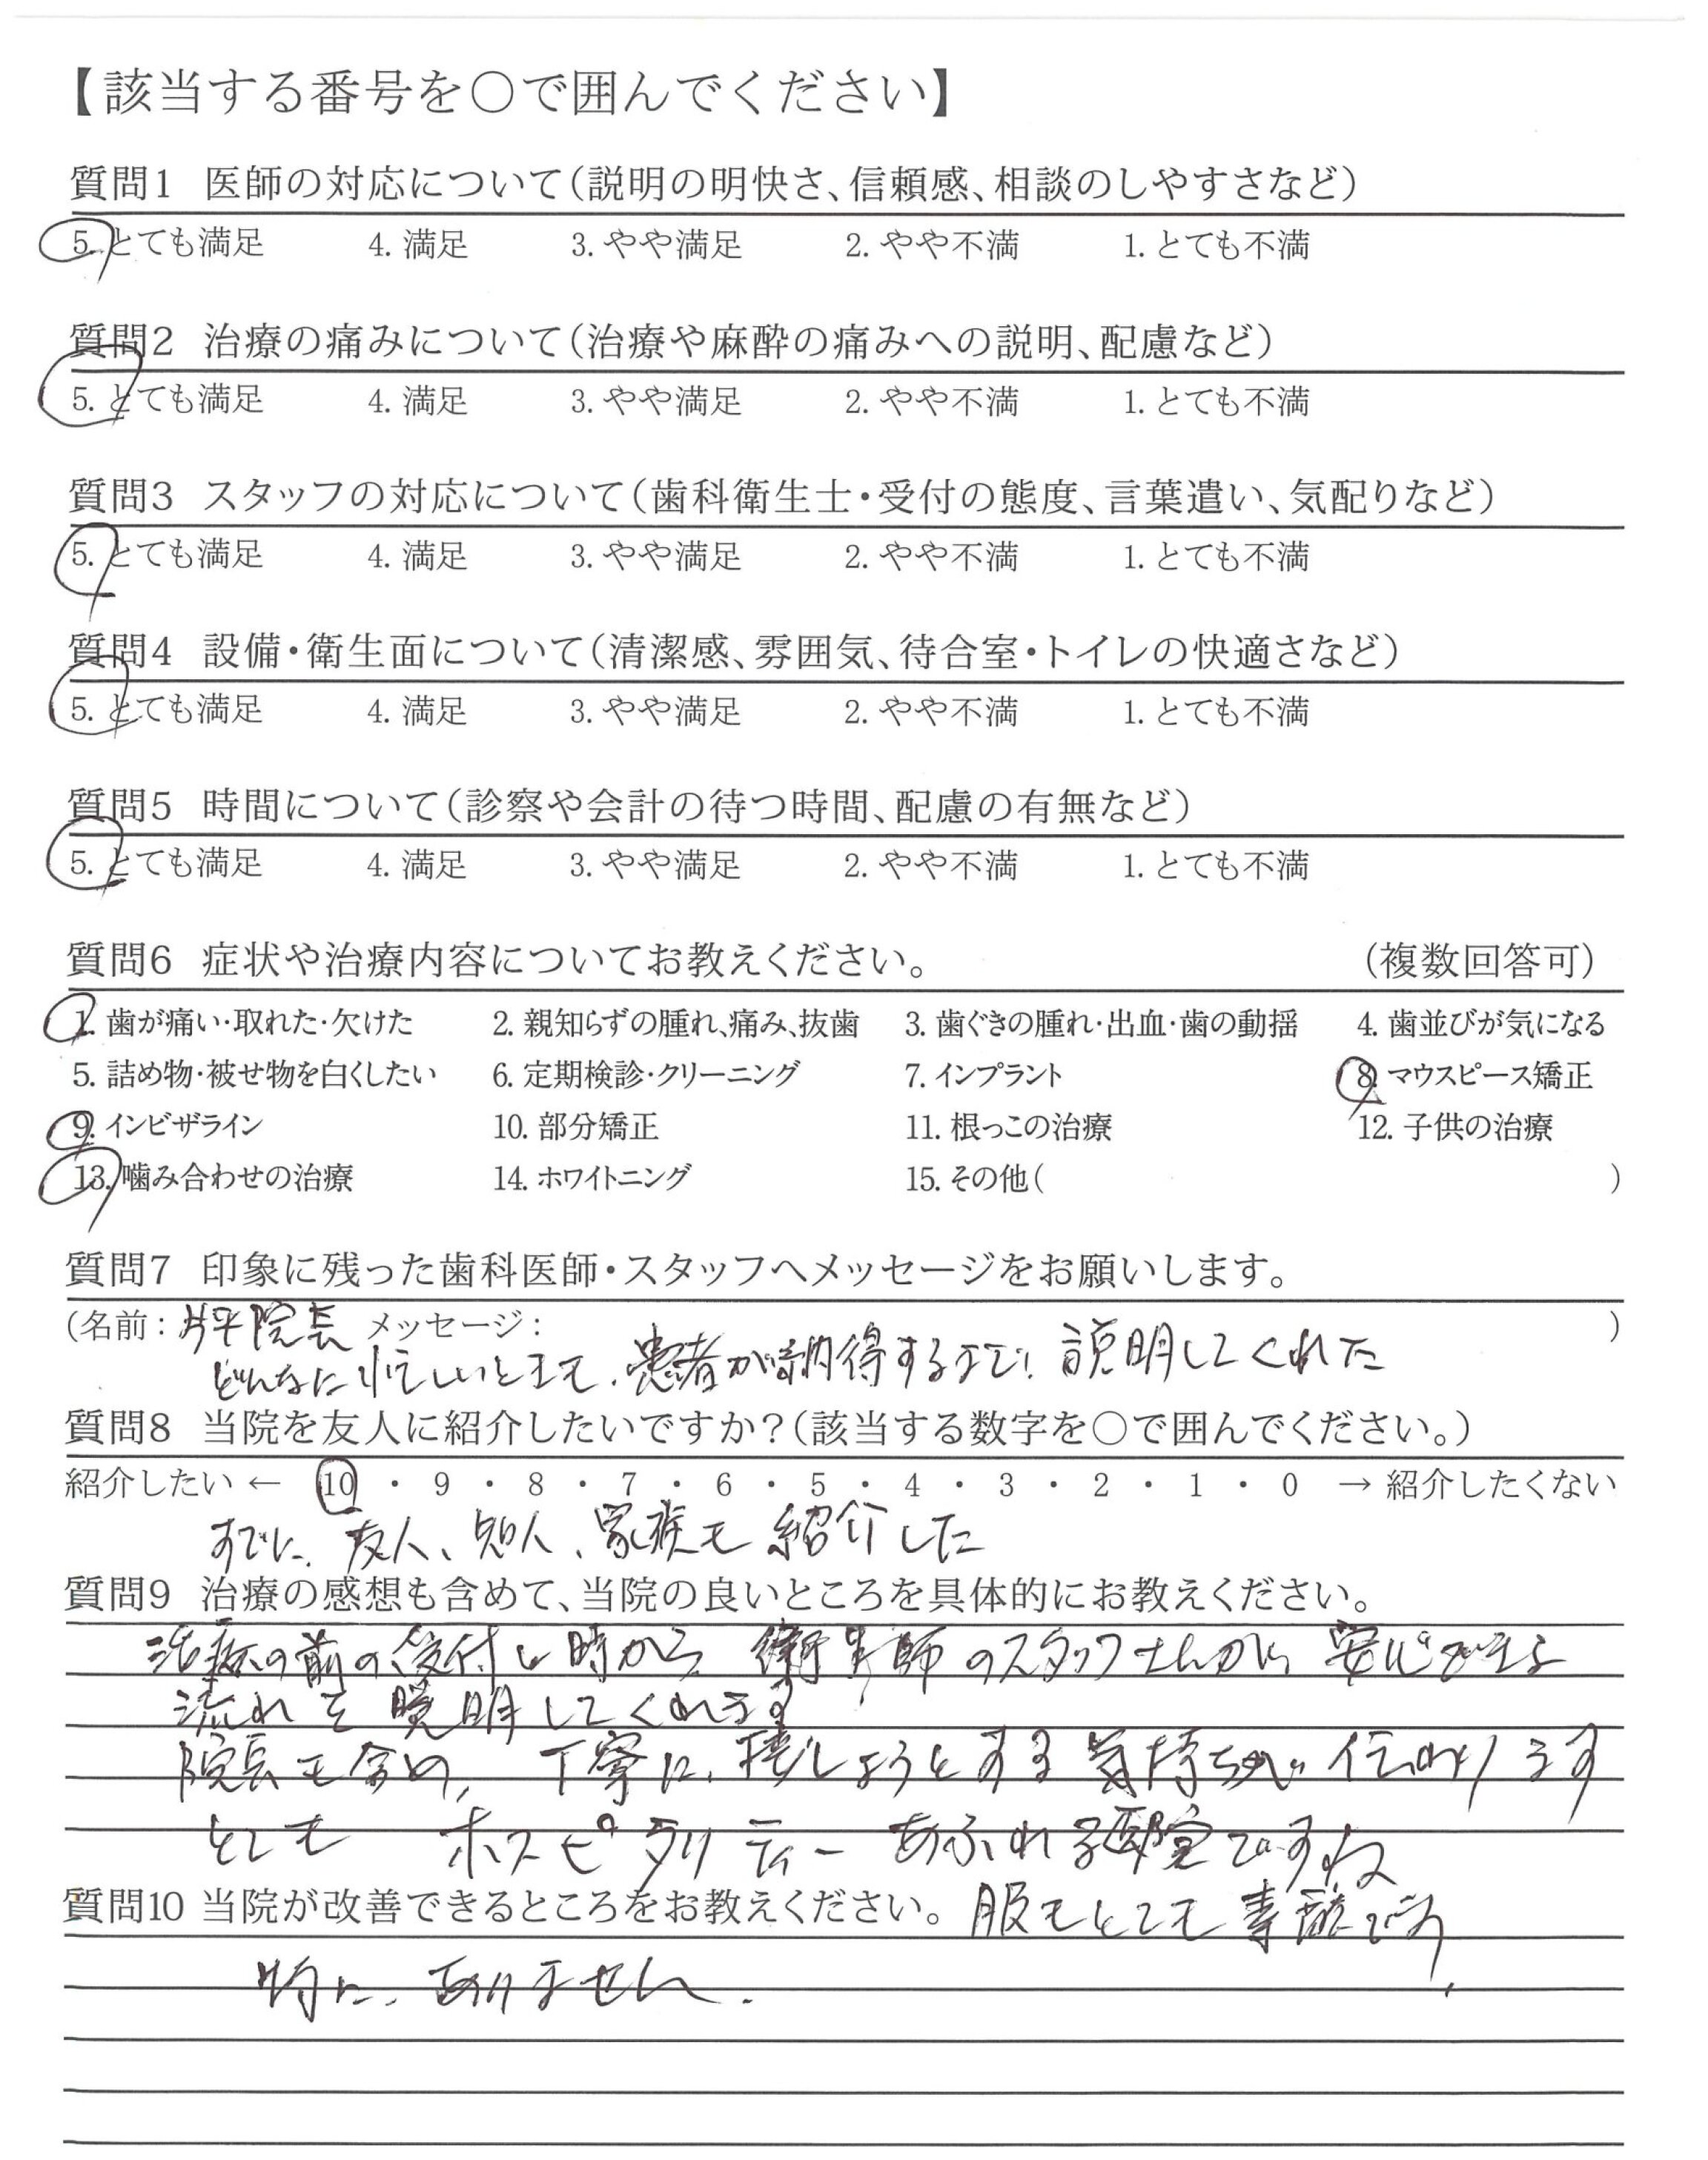 【該当する番号を○で囲んでください】
質問1 医師の対応について(説明の明快さ、信頼感、相談のしやすさなど)
5. とても満足 4. 満足 3. やや満足 2. やや不満 1. とても不満
質問2 治療の痛みについて(治療や麻酔の痛みへの説明、配慮など)
5. とても満足 4. 満足 3. やや満足 2. やや不満 1. とても不満
質問3 スタッフの対応について(歯科衛生士・受付の態度、言葉遣い、気配りなど)
5. とても満足 4. 満足 3. やや満足 2. やや不満 1. とても不満
質問4 設備・衛生面について(清潔感、雰囲気、待合室・トイレの快適さなど)
5. とても満足 4. 満足 3. やや満足 2. やや不満 1. とても不満
質問5 時間について(診察や会計の待つ時間、配慮の有無など)
5. とても満足 4. 満足 3. やや満足 2. やや不満 1. とても不満
質問6 症状や治療内容についてお教えください。 (複数回答可)
1. 歯が痛い・取れた・欠けた 2. 親知らずの腫れ、痛み、抜歯 3. 歯ぐきの腫れ・出血・歯の動揺 4. 歯並びが気になる
5. 詰め物・被せ物を白くしたい 6. 定期検診・クリーニング 7. インプラント 8. マウスピース矯正
9. インビザライン 10. 部分矯正 11. 根っこの治療 12. 子供の治療
13. 噛み合わせの治療 14. ホワイトニング 15. その他( )
質問7 印象に残った歯科医師・スタッフへメッセージをお願いします。
(名前:片平院長 メッセージ: )
どんなに忙しいときも、患者が納得するまで! 説明してくれた
質問8 当院を友人に紹介したいですか?(該当する数字を○で囲んでください。)
紹介したい ← 10 ・ 9 ・ 8 ・ 7 ・ 6 ・ 5 ・ 4 ・ 3 ・ 2 ・ 1 ・ 0 → 紹介したくない
すでに、友人、知人、家族も紹介した
質問9 治療の感想も含めて、当院の良いところを具体的にお教えください。
治療の前の受付の時から、衛生師のスタッフさんから 安心できる
流れを説明してくれます
院長も含め、丁寧に、接しようとする気持ちがい伝わります
とても ホスピタリティーあふれる医院ですね
質問10 当院が改善できるところをお教えください。 服もとても素敵です。
特に、ありません.